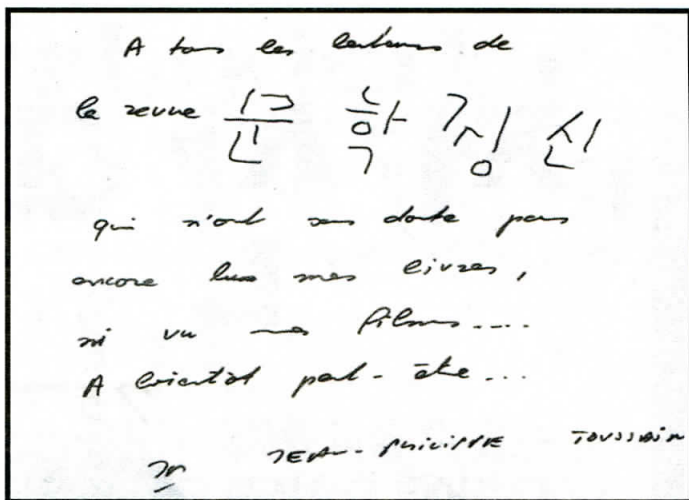 A tous les lecteurs de
la revue 문학정신
qui n'ont sans doute pas
encore lus mes livres,
ni vu mes films....
A bientôt peut-être...
JEAN-PHILIPPE TOUSSAINT